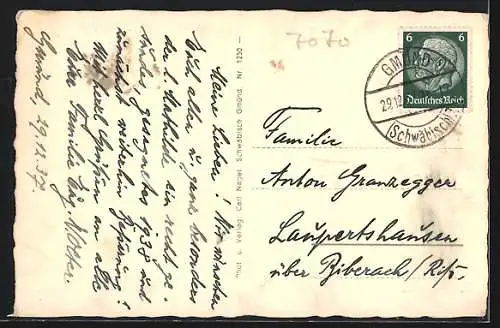 Meine Lieben! Wir wünschen
Euch allen u. ganz besonders
der l. Mathilde ein recht ge-
sundes, gesegnetes 1938 und
zunächst weiterhin Besserung!
Mit herzl. Grüßen an alle
Eure Familie
Gmünd, 29.12.37.
Phot. u. Verlag Carl Nagel, Schwäbisch Gmünd. Nr. 1250
7070
6 6
Deutsches Reich
GMÜND
29.12
(Schwäbisch)
Familie
Anton Granzegger
Laupertshausen
über Biberach/Riß.